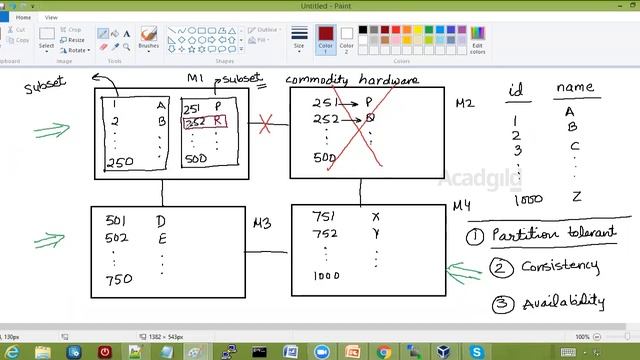 Untitled - Paint
Home
View
Paste
Cut
Copy
Select
Crop
Resize
Rotate
Brushes
Outline
Fill
Size
Color 1
Color 2
Edit colors
Clipboard
Image
Tools
Shapes
Colors
subset
M1
subset
commodity hardware
1 A
2 B
250
251 P
352 R
500
251 P
252 Q
500
M2
id name
1 A
2 B
3 C
1000 Z
Acadgild
501 D
502 E
750
M3
751 X
752 Y
1000
M4
1 Partition tolerant
2 Consistency
3 Availability
130px
1382 × 543px
100%